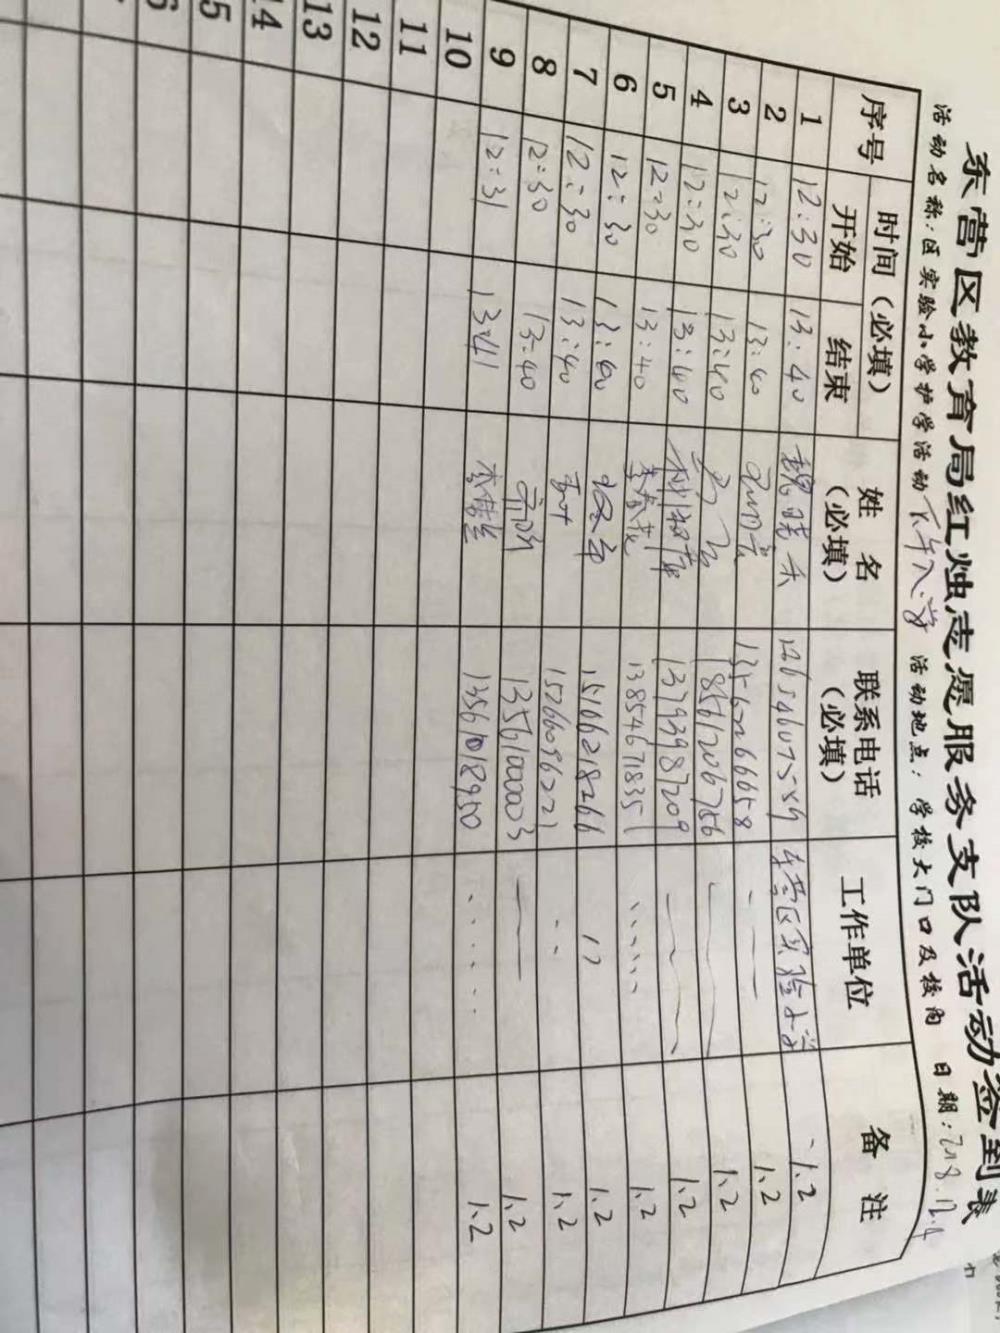 东营区教育局红烛志愿服务支队活动签到表
活动名称：区实验小学护学活动 下午入学 活动地点：学校大门口及校内 日期：2018.12.4
序号 时间（必填） 姓名（必填） 联系电话（必填） 工作单位 备注
开始 结束
1 12:30 13:40 魏晓禾 东营区实验小学 1.2
2 12:30 13:40 13562266658 1.2
3 12:30 13:40 18561206756 1.2
4 12:30 13:40 13793987209 1.2
5 12:30 13:40 李春花 13854671835 1.2
6 12:30 13:40 15106218266 〃 1.2
7 12:30 13:40 15266096221 1.2
8 12:30 13:40 13561000003 1.2
9 12:31 13:41 13561018950 1.2
10
11
12
13
14
15